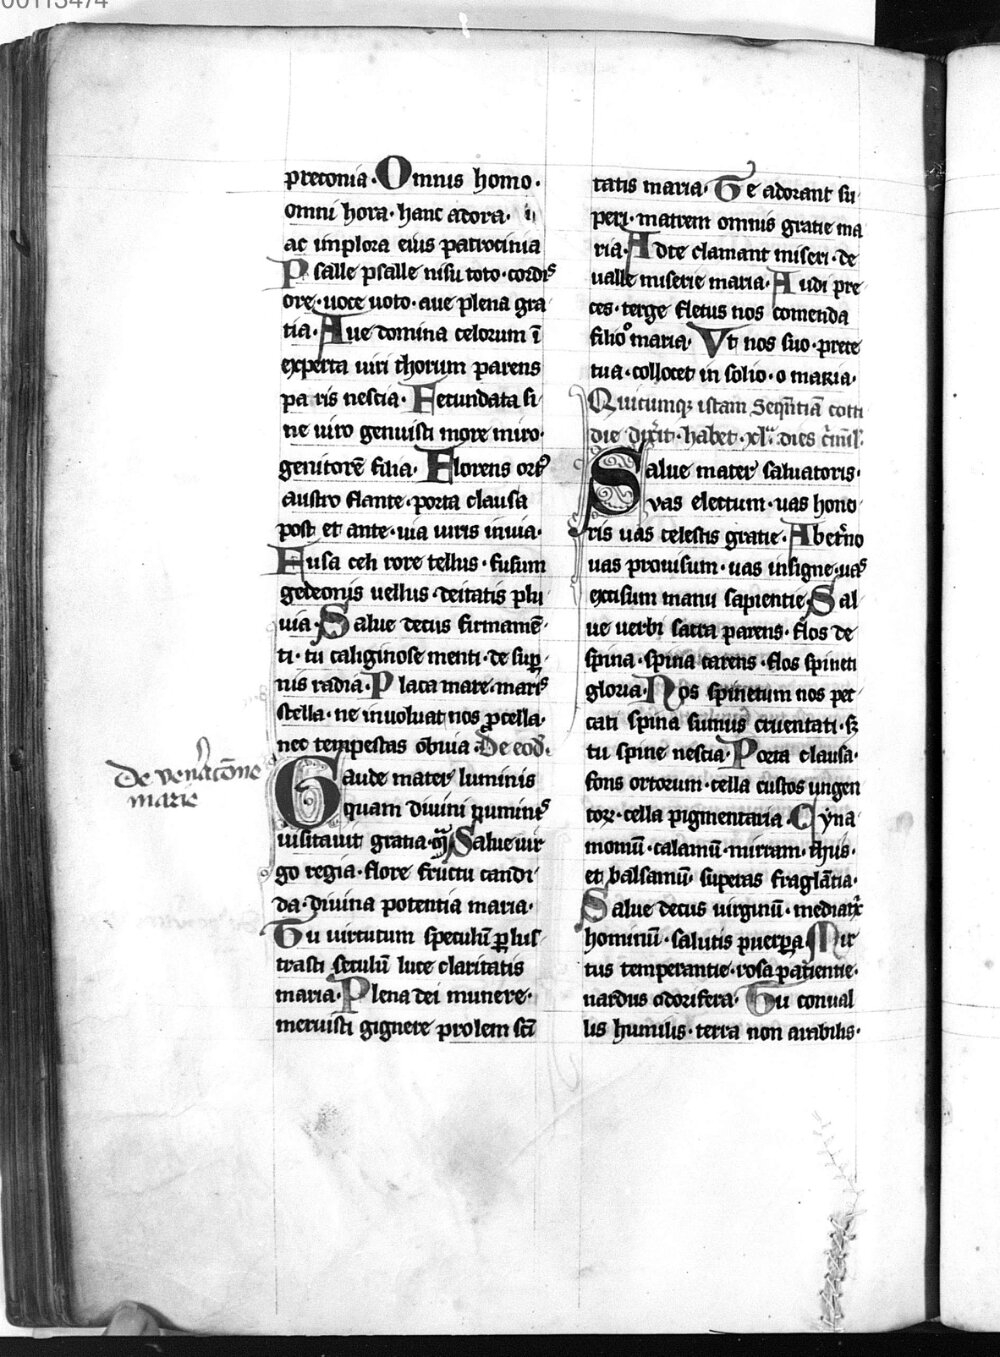 00113474
preconia· Omnis homo·
omni hora· hanc adora· 
ac implora eius patrocinia
Psalle psalle nisu toto· cordis
ore· uoce uoto· aue plena gra
tia· Aue domina celorum ī
experta uiri thorum parens
pa ris nescia· Fecundata si
ne uiro genuisti more miro·
genitorē filia· Florens ortꝰ
austro flante· porta clausa
post et ante· uia uiris inuia·
Fusa celi rore tellus· fusum
gedeonis uellus· deitatis plu
uia· Salue decus firmamē
ti· tu caliginose menti· de suꝑ
nis radia· Placa mare maris
stella· ne inuoluat nos ꝓcella·
nec tempestas obuia De eod̄·
Gaude mater luminis
quam diuini numinis
uisitauit gratia· Salue uir
go regia· flore fructu candi
da· diuina potentia maria·
Tu uirtutum speculū ꝑlus
trasti seculū luce claritatis
maria· Plena dei munere·
meruisti gignere prolem scī
De venerac̄one
marie
tatis maria· Te adorant su
peri· matrem omnis gratie ma
ria· Adte clamant miseri· de
ualle miserie maria· Audi pre
ces· terge fletus nos comenda
filio maria· Vt nos suo· prece
tua· collocet in solio· o maria·
Quicumqꝫ istam Seqn̄tiā coti
die dixit· habet· xl· dies c̄mīl·
Salue mater saluatoris·
vas electum· uas hono
ris uas celestis gratie· Abet̄no
uas prouisum· uas insigne· uas
excisum manu sapientie Sal
ue uerbi sacra parens· flos de
spina· spina carens· flos spineti
gloria· Nos spinetum nos pec
cati spina sumus cruentati· sꝫ
tu spine nescia· Porta clausa·
fons ortorum· cella custos ungen
toꝝ· cella pigmentaria Cyna
momū· calamū· mirram· thus·
et balsamū· superas fraglātia·
Salue decus virginū· mediatrix
hominū· salutis puerꝑa Mir
tus temperantie· rosa patientie·
nardus odorifera· Tu conual
lis humilis· terra non arabilis·